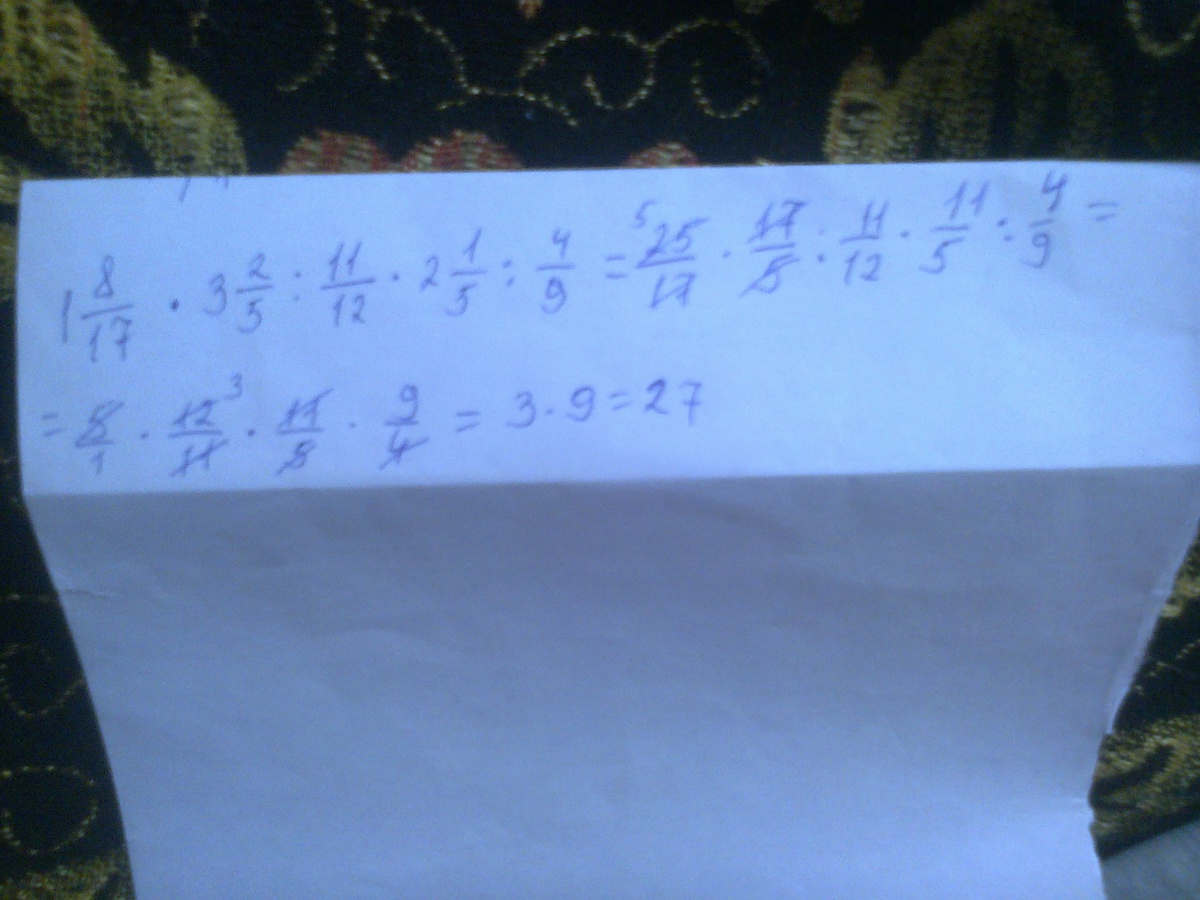 1 8/17 · 3 2/5 : 11/12 · 2 1/5 : 4/9 = 5 25/17 · 17/5 : 11/12 · 11/5 : 4/9 =
= 5/1 · 12 3/11 · 11/5 · 9/4 = 3 · 9 = 27